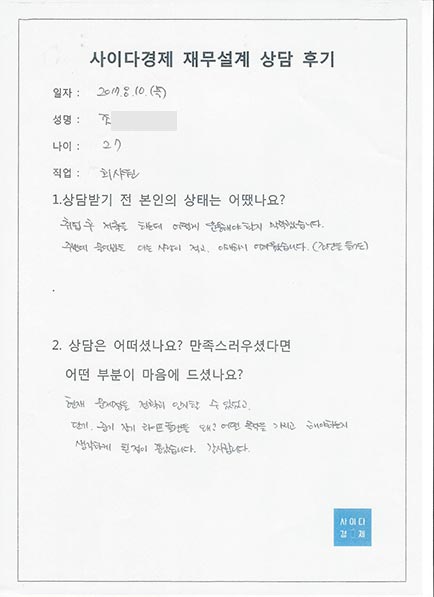 사이다경제 재무설계 상담 후기
일자 : 2017.8.10.(목)
성명 : 조
나이 : 27
직업 : 회사원
1.상담받기 전 본인의 상태는 어땠나요?
취업 후 저축을 하는데 어떻게 운용해야 할지 막막했습니다.
주변에 물어봐도 아는 사람이 적고, 이해하기 어려웠습니다.
2. 상담은 어떠셨나요? 만족스러우셨다면
어떤 부분이 마음에 드셨나요?
현재 문제점을 정확히 인지할 수 있었고,
단기. 중기 장기 플랜을 왜? 어떤 목적을 가지고 해야하는지
생각하게 된점이 좋았습니다. 감사합니다.
사이다
경제